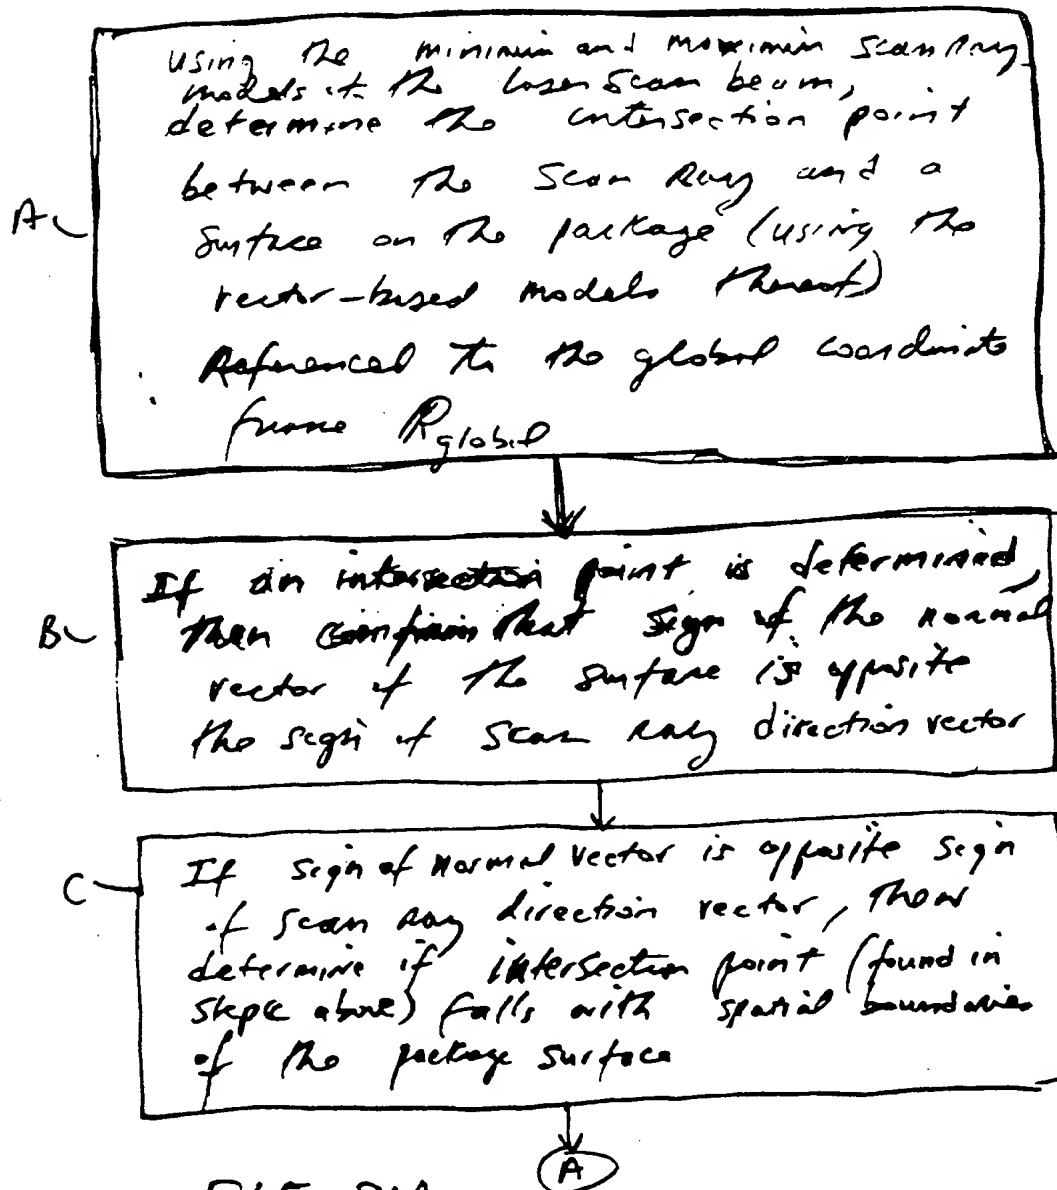 using the minimum and maximum scan ray
models of the laser scan beam,
determine the intersection point
A
between the scan Ray and a
surface on the package (using the
vector-based models thereof)
Referenced to the global coordinate
frame Rglobal
If an intersection point is determined,
B
then confirm that sign of the normal
vector of the surface is opposite
the sign of scan ray direction vector
C
If sign of normal vector is opposite sign
of scan ray direction vector, then
determine if intersection point (found in
above) falls with spatial boundaries
of the package surface
A